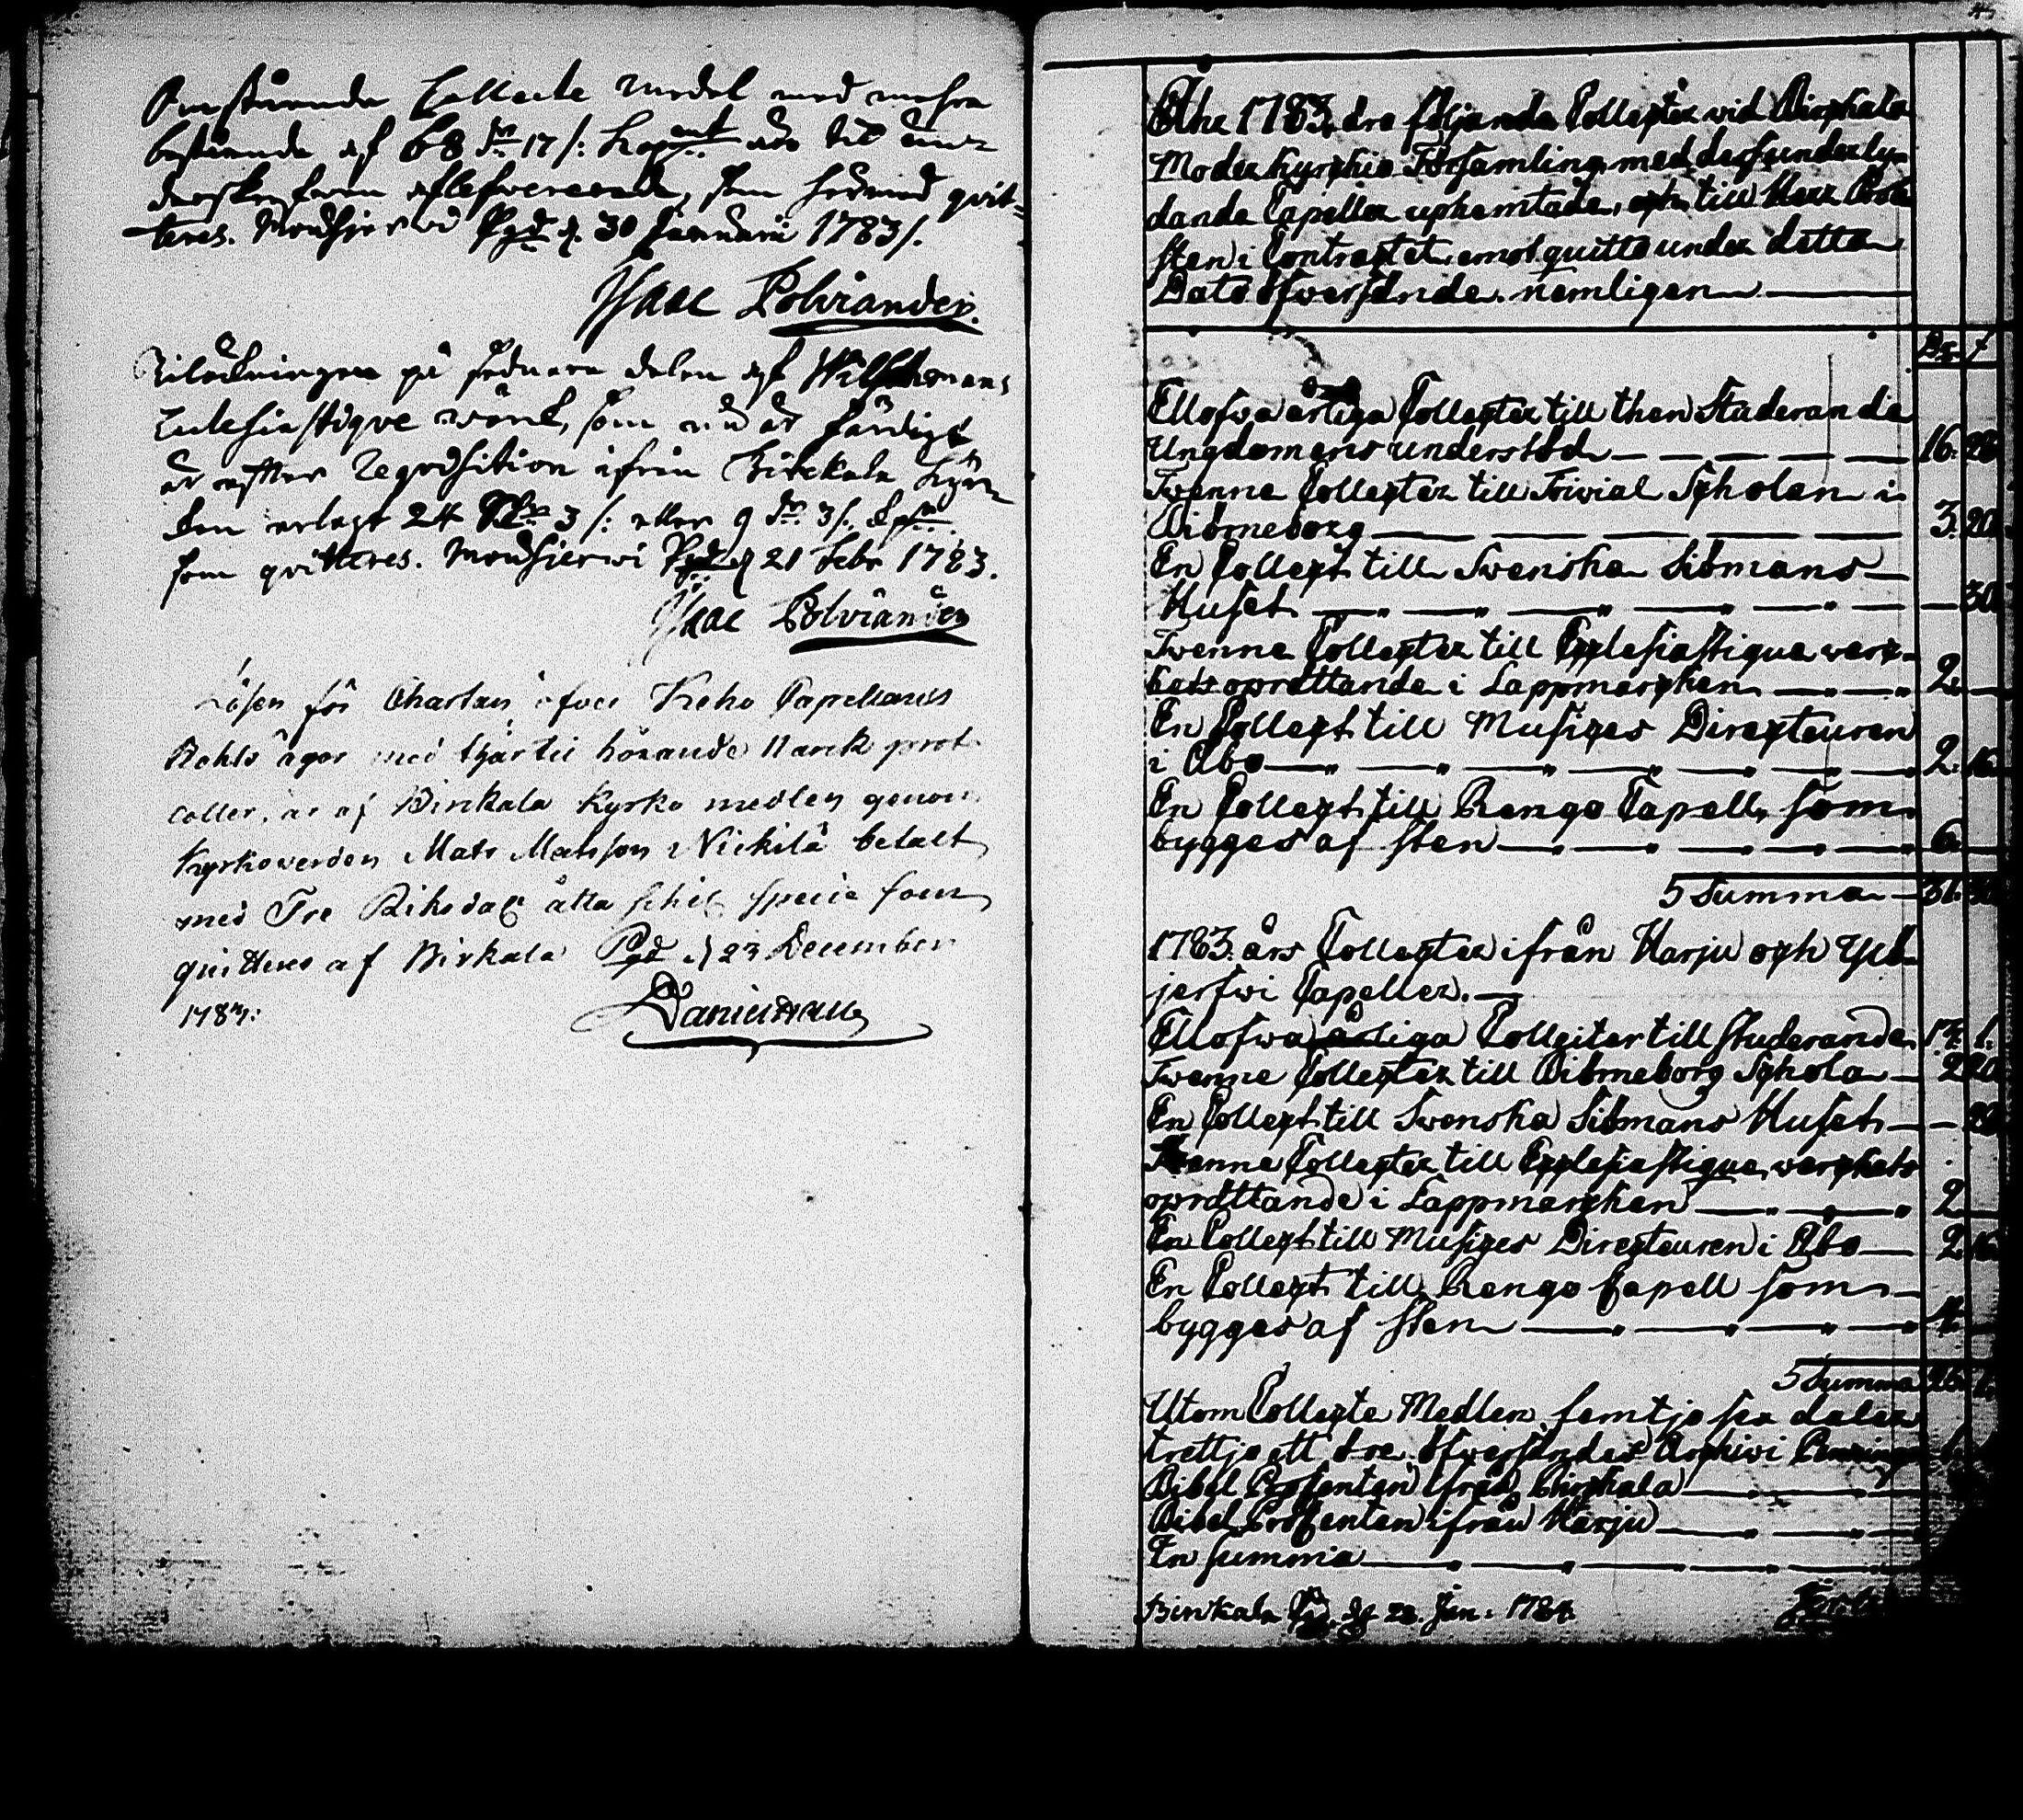 Ofvanstående Collecte Medel med mehra
bestående af 68 dr 17 /: Kopmt äro til un-
derskrefven aflefwererade, som härmed qvit-
teres. Mouhijerwi Pgd d. 30 Januarii 1783/.
Isaac Polviander.
Inlösningen på sednare delen af Wilskmans
Ecclesiastique wärck, som nu är färdigt
är efter Reqvisition ifrån Birckala Kyrc
kan erlagt 24 3 /: eller 9 dr 3/.
som qvitteres. Mouhijerwi Pgd d 21 Febr 1783.
Isaac Polviander
Lösen för Chartan öfver Keho Capellanies
Bohls ägor med thjärtil hörande proto
coller, är af Birkala Kyrko medlen genom
Kyrkoverden Mats Matsson Nickilä betalt
med Tre Riksdal åtta schil specie som
quitteres af Birkala Pgd d 23 December
1783:
Daniel Hall
Åhr 1783. äro följande Collecter vid Birckala
Moder Kyrckio Församling med desfunderly-
dande Capeller uphemtade, och till Herr Prob
sten i Contractet emot quitto under detta
Dato öfwersände. nemligen
Dr f
Ellofwa årliga Collecter till then Studerande
Ungdomens understöd 16. 28
Twenne Collecter till Trivial Scholan i
Biörneborg 3. 20
En Collect till Swenska Siömans
Huset 30
Twenne Collecter till Ecclesiastique werc-
kets oprättande i Lappmarcken 2.
En Collect till Musices Directeuren
i Åbo 2. 16
En Collect till Rengo Capell, som
bygges af Sten 6.
Summa 31. 30
1783. års Collecter ifrån Harju och Ylö-
jerfwi Capeller.
Ellofwa årliga Collecter till studerande 14. 1.
Twenne Collecter till Biörneborg Schola 2 20
En Collect till Swenska Siömans Huset 28
Twenne Collecter till Ecclesiastique werckets
oprättande i Lappmarcken 2
En Collect till Musices Directeuren i Åbo 2. 16
En Collect till Rengo Capell som
bygges af Sten 4.
Summa 25. 1.
Utom Collecte Medlen femtjo sex daler
trettjo ett öre öfwersändes Archivi Penningar
Bibel Procenten ifrån Birckala
Bibel Procenten ifrån Harju
En summa
Birkala Pgd. d 28. Jan. 1784.